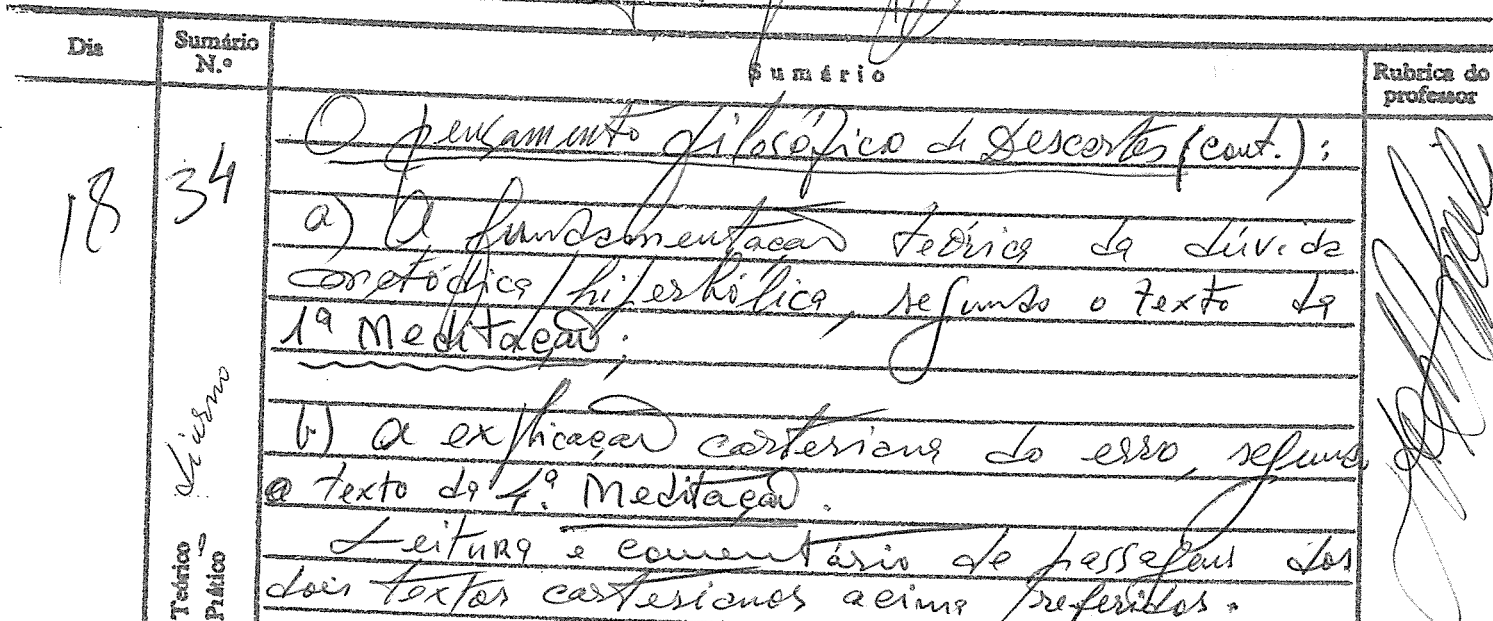 Dia
Sumário N.º
Sumário
Rubrica do professor
18
34
O pensamento filosófico de Descartes (cont.):
a) A fundamentação teórica da dúvida
metódica/hiperbólica, segundo o texto da
1ª Meditação;
b) A explicação cartesiana do erro, segundo
o texto da 4ª Meditação.
Leitura e comentário de passagens dos
dois textos cartesianos acima referidos.
diurno
Teórico
Prático